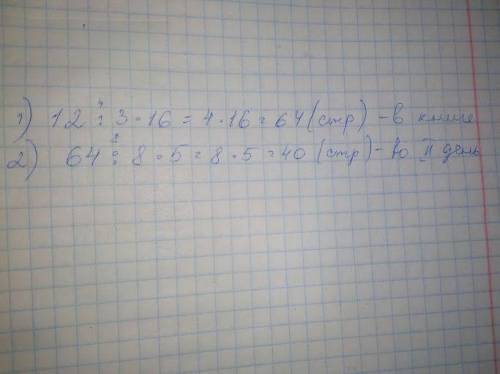 1) 12 : 3 · 16 = 4 · 16 = 64 (стр) - в книге
2) 64 : 8 · 5 = 8 · 5 = 40 (стр) - во II день